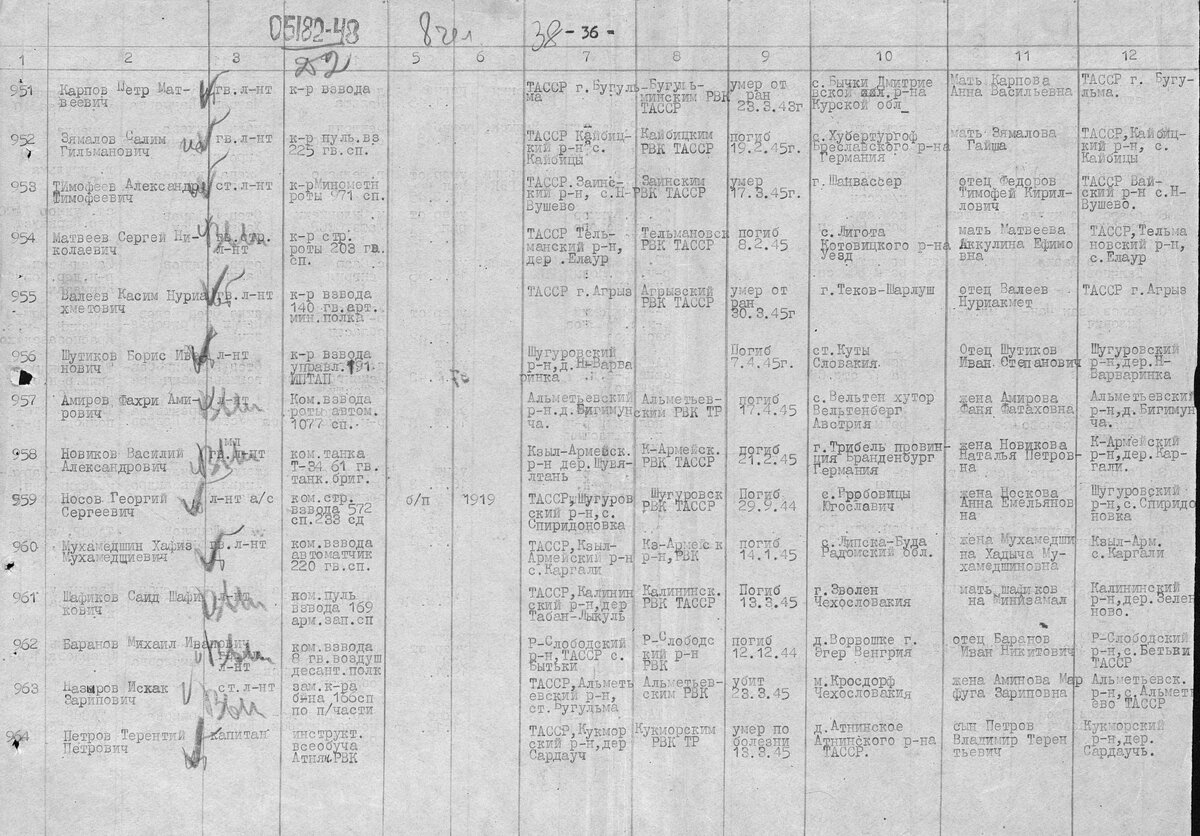 05182-48 8 чел 38 - 36 -
1 2 3 Д2 5 6 7 8 9 10 11 12
951 Карпов Петр Мат- гв.л-нт к-р взвода ТАССР г.Бугуль- Бугуль- умер от с.Бычки Дмитрие Мать Карпова ТАССР г. Бугу-
веевич ма минским РВК ран вской р-на Анна Васильевна льма.
ТАССР 23.3.43г Курской обл
952 Зямалов Салим гв.л-нт к-р пуль.вз ТАССР Кайбиц- Кайбицким погиб с.Хубертургоф мать Зямалова ТАССР,Кайбиц-
Гильманович 225 гв.сп. кий р-н с. РВК ТАССР 19.2.45г. Бреславского р-на Гайша кий р-н, с.
Кайбицы Германия Кайбицы
953 Тимофеев Александр ст.л-нт к-рМинометн ТАССР.Заинс- Заинским умер г.Шанвассер отец Федоров ТАССР Вай-
Тимофеевич роты 971 сп. кий р-н, с.Н- РВК ТАССР 17.3.45г. Тимофей Кирил- ский р-н с.Н-
Вушево лович Вушево.
954 Матвеев Сергей Ни- гв.ст. к-р стр. ТАССР Тель- Тельмановск погиб с.Лигота мать Матвеева ТАССР,Тельма
колаевич л-нт роты 203 гв. манский р-н, РВК ТАССР 8.2.45 Котовицкого р-на Аккулина Ефимо новский р-н,
сп. дер .Елаур Уезд вна с.Елаур
955 Валеев Касим Нуриа гв.л-нт к-р взвода ТАССР г.Агрыз Агрызский умер от г.Теков-Шарлуш отец Валеев ТАССР г.Агрыз
хметович 140 гв.арт. РВК ТАССР ран. Нуриакмет
мин.полка 30.3.45г
956 Шутиков Борис Ива л-нт к-р взвода Шугуровский Погиб ст.Куты Отец Шутиков Шугуровский
нович управл.191 р-н,д.Н-Варва 7.4.45г. Словакия Иван Степанович р-н,дер.Н-
ИПТАП ринка Варваринка
957 Амиров Фахри Ами- л-нт Ком.взвода Альметьевский Альметьев- погиб с.Вельтен хутор жена Амирова Альметьевский
рович роты автом. р-н.д.Бигимун ским РВК ТР 17.4.45 Вельтенберг Фаня Фатаховна р-н,д.Бигимун
1077 сп. ча. Австрия ча.
958 Новиков Василий гв.мл л-нт ком.танка Кзыл-Армейск. К-Армейск. погиб г.Трибель провин- жена Новикова К-Армейский
Александрович Т-34 61 гв. р-н дер.Шувя- РВК ТАССР 21.2.45 ция Бранденбург Наталья Петров- р-н,дер.Кар-
танк.бриг. лтань Германия на гали.
959 Носов Георгий л-нт а/с ком.стр. б/п 1919 ТАССР,Шугуров Шугуровск Погиб жена Носкова Шугуровский
Сергеевич взвода 572 ский р-н,с. РВК ТАССР 29.9.44 Югославич Анна Емельянов р-н,с.Спиридо
сп.233 сд Спиридоновка на новка
960 Мухамедшин Хафиз гв.л-нт ком.взвода ТАССР,Кзыл- Кз-Армейск погиб с.Липска-Буда жена Мухамедши Кзыл-Арм.
Мухамедциевич автоматчик Армейский р-н р-н,РВК 14.1.45 Радомский обл. на Хадыча Му- с.Каргали
220 гв.сп. с.Каргали хамедшиновна
961 Шафиков Саид Шафи л-нт ком.пуль ТАССР,Калинин Калининск. Погиб г.Зволен мать шафиков Калининский
кович взвода 169 ский р-н,дер РВК ТАССР 13.3.45 Чехословакия на Минизамал р-н,дер.Зелен
арм.зап.сп Табан-Лыкуль ново.
962 Баранов Михаил Иванович л-нт ком.взвода Р-Слободский Р-Слободс погиб д.Ворвошке г. отец Баранов Р-Слободский
8 гв.воздуш р-н,ТАССР с. кий р-н 12.12.44 Эгер Венгрия Иван Никитович р-н,с.Бетьки
десант.полк Бытьки РВК ТАССР
963 Назыров Искак ст.л-нт зам.к-ра ТАССР,Альметь Альметьев- убит м.Кросдорф жена Аминова Мар Альметьевск.
Зарипович б-на 166сп евский р-н, ским РВК 23.3.45 Чехословакия фуга Зариповна р-н,с.Альмет
по п/части ст.Бугульма ево ТАССР
964 Петров Терентий капитан инструкт. ТАССР,Кукмор Кукморским умер по д.Атнинское сын Петров Кукморский
Петрович всеобуча ский р-н,дер РВК ТР болезни Атнинского р-на Владимир Терен р-н,дер.
Атнян РВК Сардауч 13.3.45 ТАССР. тьевич Сардаучь.